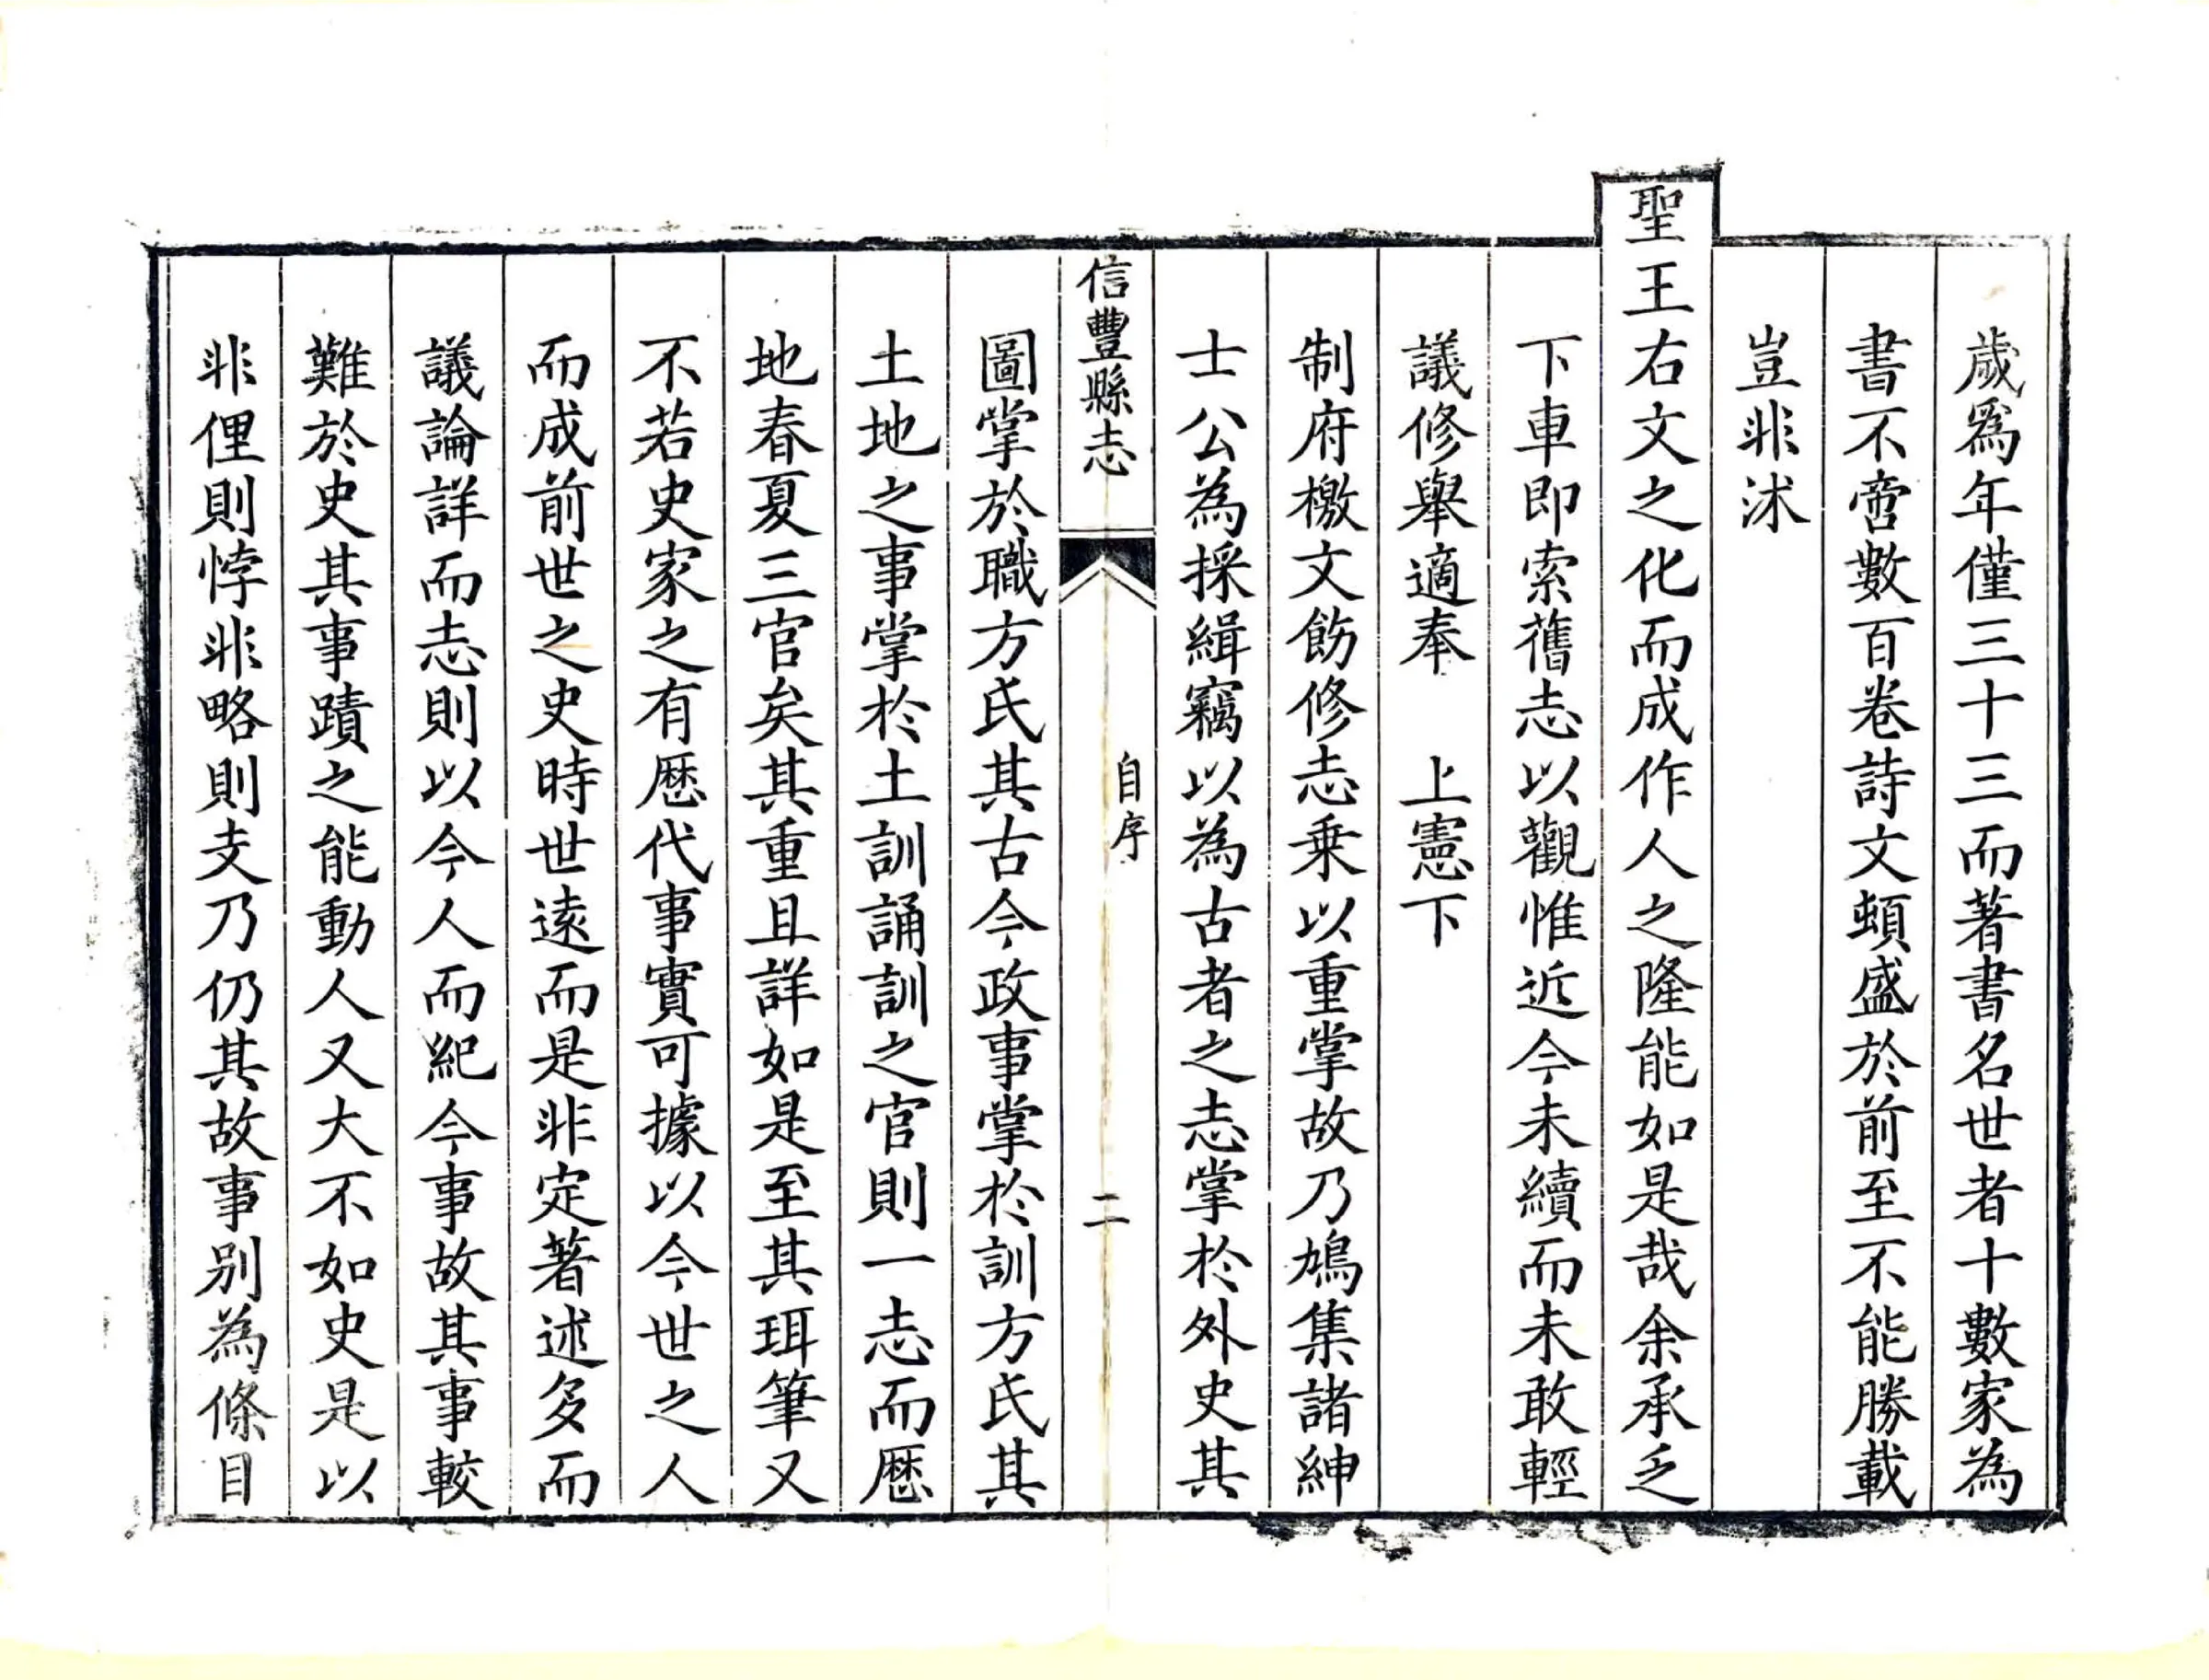 歲爲年僅三十三而著書名世者十數家為
書不啻數百卷詩文頓盛於前至不能勝載
豈非沐
聖王右文之化而成作人之隆能如是哉余承乏
下車即索舊志以觀惟近今未續而未敢輕
議修舉適奉　上憲下
制府檄文飭修志乗以重掌故乃鳩集諸紳
士公為採緝竊以為古者之志掌於外史其
信豐縣志　自序　二
圖掌於職方氏其古今政事掌於訓方氏其
土地之事掌於土訓誦訓之官則一志而歷
地春夏三官矣其重且詳如是至其珥筆又
不若史家之有歷代事實可據以今世之人
而成前世之史時世遠而是非定著述多而
議論詳而志則以今人而紀今事故其事較
難於史其事蹟之能動人又大不如史是以
非俚則悖非略則支乃仍其故事別為條目